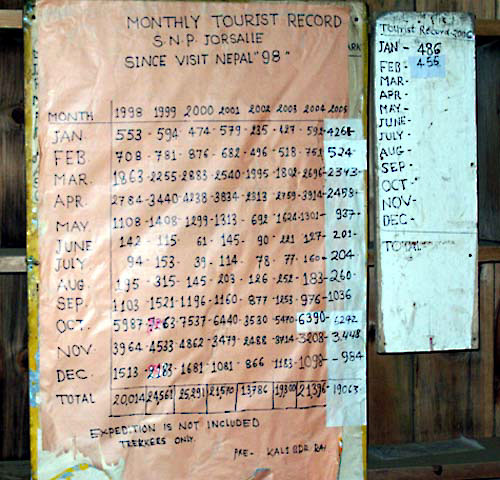 MONTHLY TOURIST RECORD
S.N.P JORSALLE
SINCE VISIT NEPAL "98"
ARK
MONTH 1998 1999 2000 2001 2002 2003 2004 2005
JAN. 553- 594- 474- 579- 235- 427- 591- 426-
FEB. 708- 781- 876- 682- 496- 518- 751 524-
MAR. 1863- 2255- 2883- 2540- 1995- 1802- 2696- 2343-
APR. 2784- 3440- 4238- 3834- 2313- 2759- 3914- 2458-
MAY. 1108- 1408- 1299- 1313- 692- 1624- 1301- 937-
JUNE 142- 115- 61- 145- 90- 221 127- 201-
JULY 94- 153- 39- 114- 78- 77- 160- 204
AUG. 195- 315- 145- 203- 126- 252- 183- 260-
SEP. 1103- 1521- 1196- 1160- 877- 1253- 976- 1036
OCT. 5987 7537- 6440- 3530- 5470- 6390- 6292
NOV. 3964- 4533- 4862- 3479- 2488- 3714- 3208- 3448
DEC. 1513- 2183- 1681- 1081- 866- 1183- 1098- 984
TOTAL 20014 24561 25291 21570 13786 19300 21396 19063
EXPEDITION IS NOT INCLUDED
TREKKERS ONLY.
PRE- KALI BDR RAI
Tourist Record 2006
JAN - 486
FEB - 455
MAR-
APR-
MAY-
JUNE-
JULY-
AUG-
SEP-
OCT-
NOV-
DEC-
TOTAL